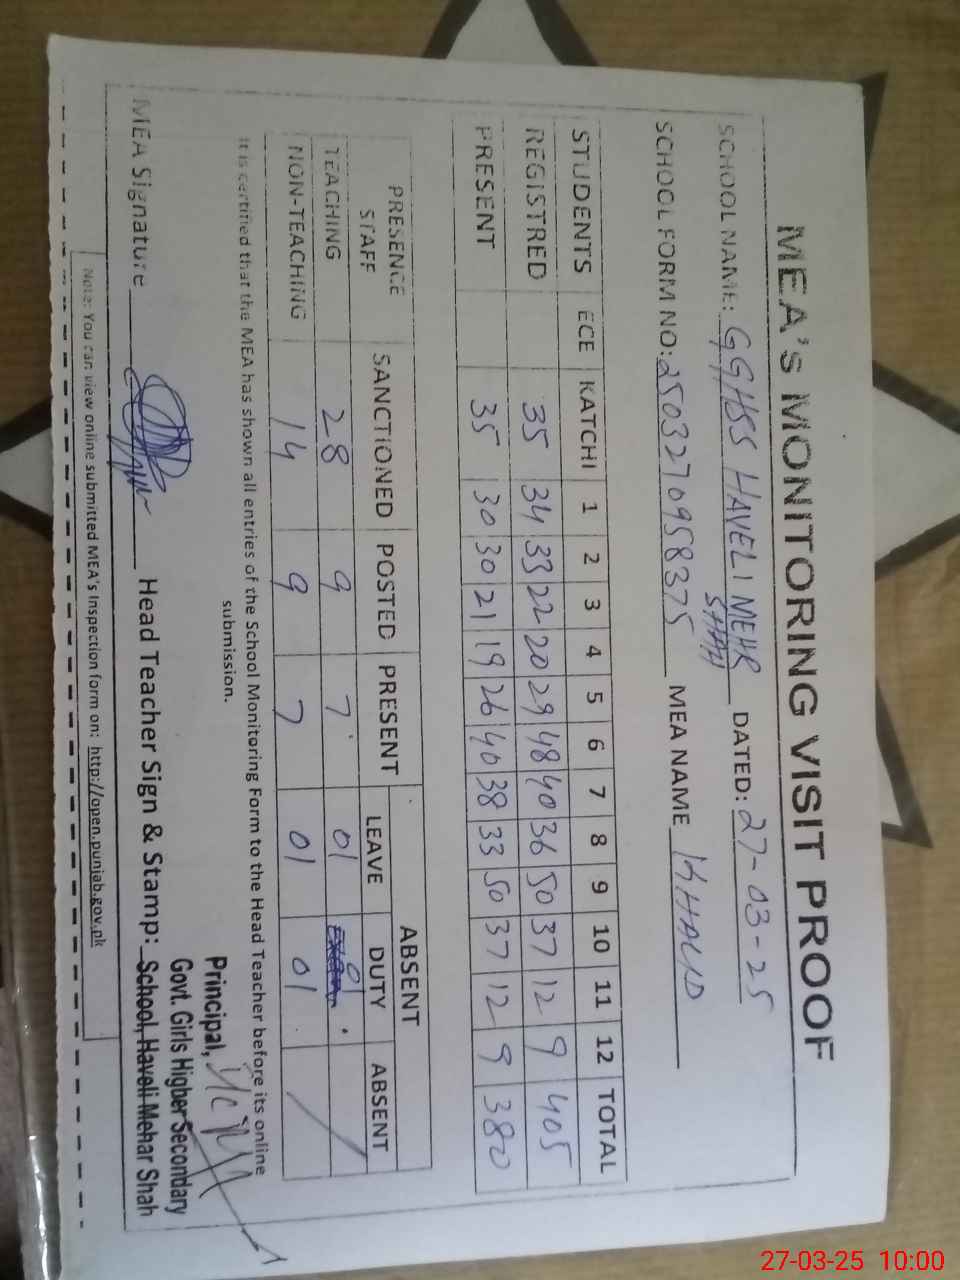 MEA's MONITORING VISIT PROOF
SCHOOL NAME: GGHSS HAVELI MEHR SHAH DATED: 27-03-25
SCHOOL FORM NO: 2503270958375 MEA NAME KHALID
STUDENTS ECE KATCHI 1 2 3 4 5 6 7 8 9 10 11 12 TOTAL
REGISTRED 35 34 33 22 20 29 48 40 36 50 37 12 9 405
PRESENT 35 30 30 21 19 26 40 38 33 50 37 12 9 380
PRESENCE STAFF SANCTIONED POSTED PRESENT ABSENT
LEAVE DUTY ABSENT
TEACHING 28 9 7 01 01
NON-TEACHING 14 9 7 01 01
It is certified that the MEA has shown all entries of the School Monitoring Form to the Head Teacher before its online
submission.
MEA Signature Head Teacher Sign & Stamp:
Principal,
Govt. Girls Higher Secondary
School, Haveli Mehar Shah
Note: You can view online submitted MEA's Inspection form on: http://open.punjab.gov.pk
27-03-25 10:00